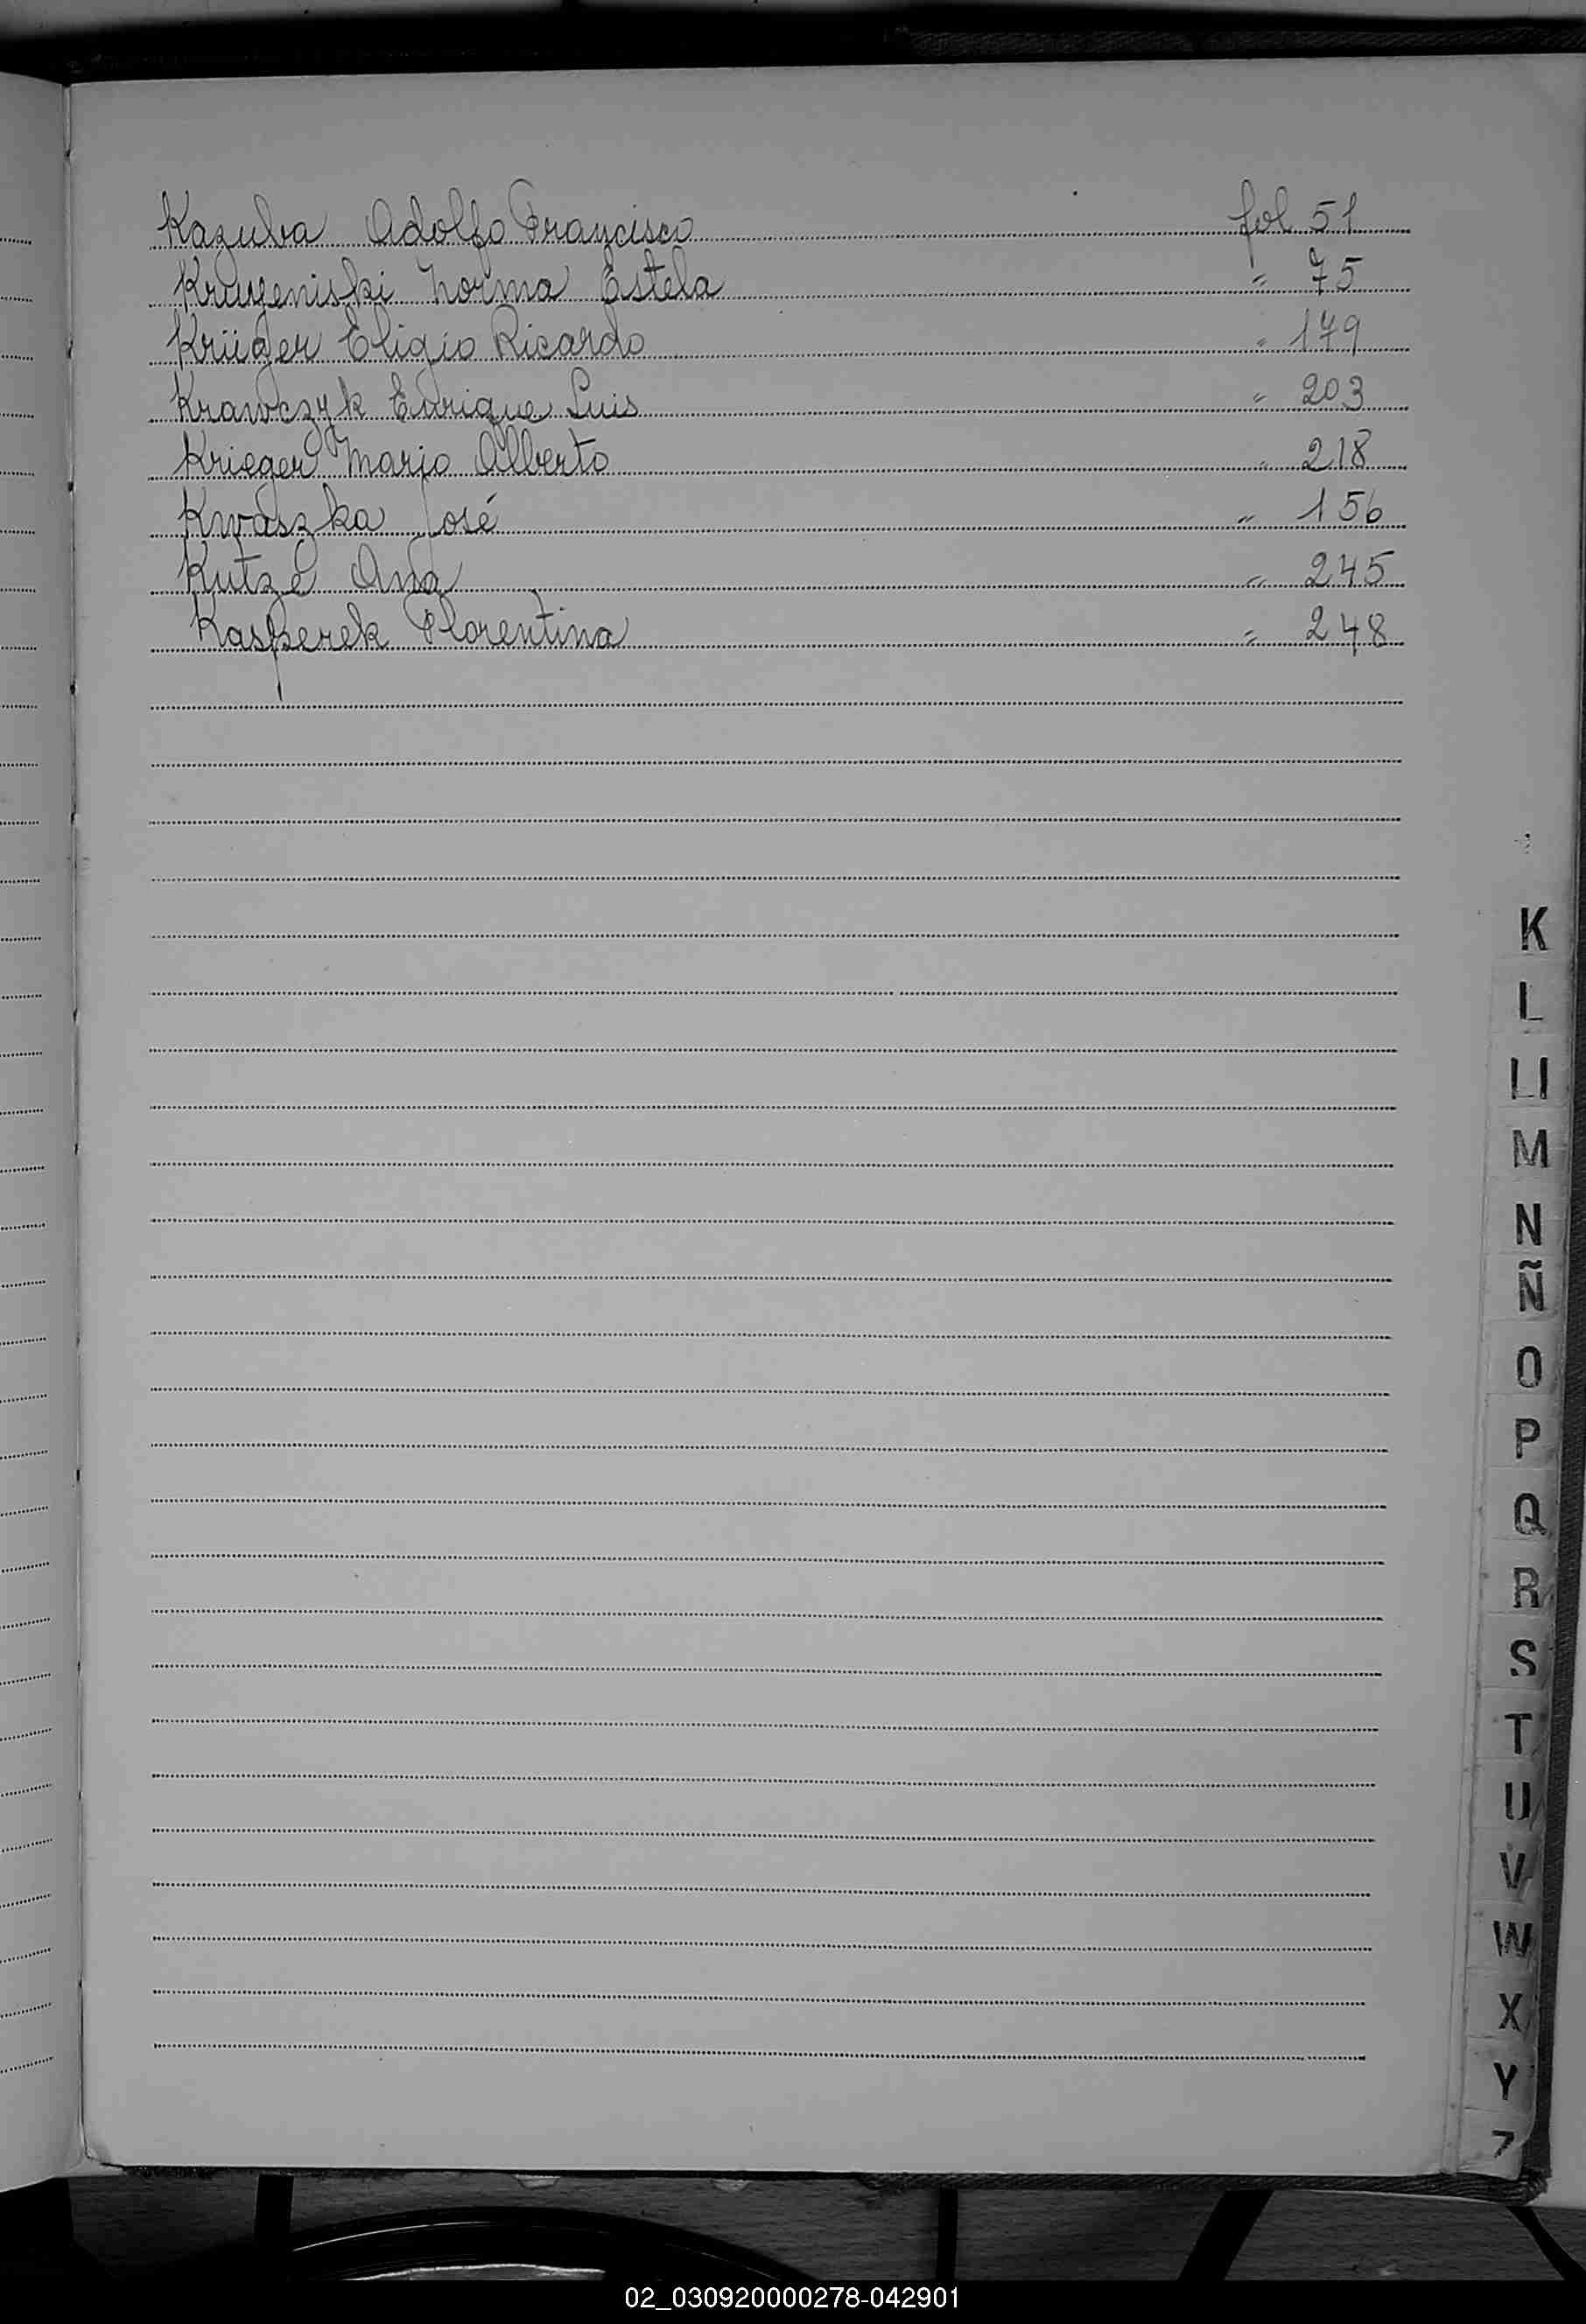 Kazuba Adolfo Francisco fol 51
Kruyeniski Norma Estela " 75
Krüger Eligio Ricardo " 179
Krawczyk Enrique Luis " 203
Krieger Mario Alberto " 218
Kwaszka José " 156
Kutzé Ana " 245
Kasperek Florentina " 248
K
L
Ll
M
N
Ñ
O
P
Q
R
S
T
U
V
W
X
Y
Z
02_030920000278-042901